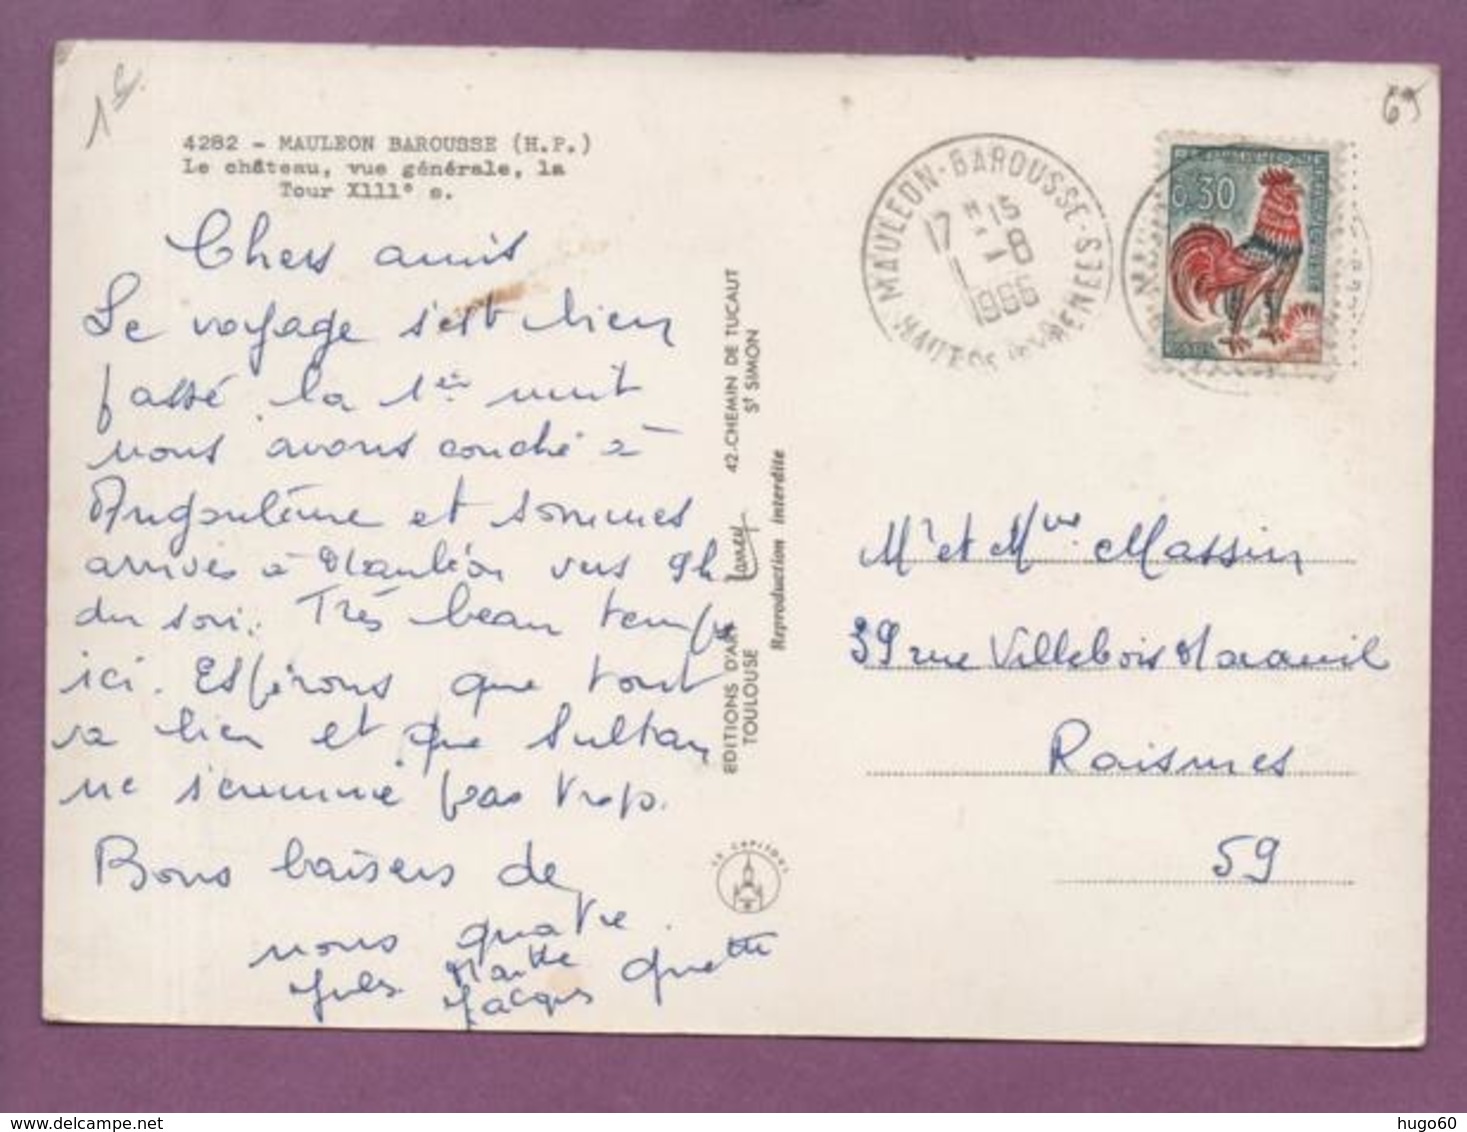 1 €.
65
4282 - MAULEON BAROUSSE (H.P.)
Le château, vue générale, la
Tour XIII° s.
Chers amis
Le voyage s'est bien
passé. la 1ère nuit
nous avons couché à
Angoulême et sommes
arrivés à Mauléon vers 9h
du soir. Très beau temps
ici. Espérons que tout
va bien et que Sultan
ne s'ennuie pas trop.
Bons baisers de
nous quatre.
Jules Marthe
Jacques Ginette
EDITIONS D'ART Larrey 42.-CHEMIN DE TUCAUT
TOULOUSE St SIMON
Reproduction interdite
LE CAPITOUL
MAULEON-BAROUSSE-
HAUTES PYRENEES
17 H 15
1 - 8
1966
0,30
Mr et Mme Massin
39 rue Villebois Mareuil
Raismes
59
hugo60